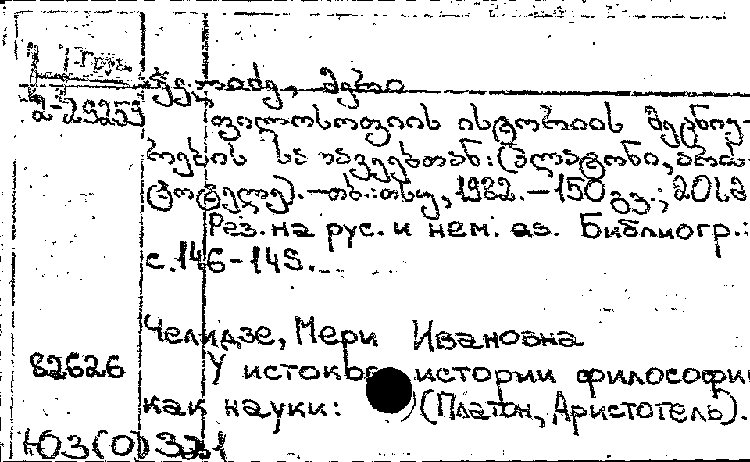 Груз.
2-29259
ჭელიძე, მერი
ფილოსოფიის ისტორიის მეცნიე-
რების სათავეებთან: (პლატონი, არის-
ტოტელე). — თბ.: თსუ, 1982. — 150 გვ.; 20სმ
Рез. на рус. и нем. яз. Библиогр.:
с. 146-148.
Челидзе, Мери Ивановна
82626
У истоков истории философии
как науки: (Платон, Аристотель).
Ю3(0)321